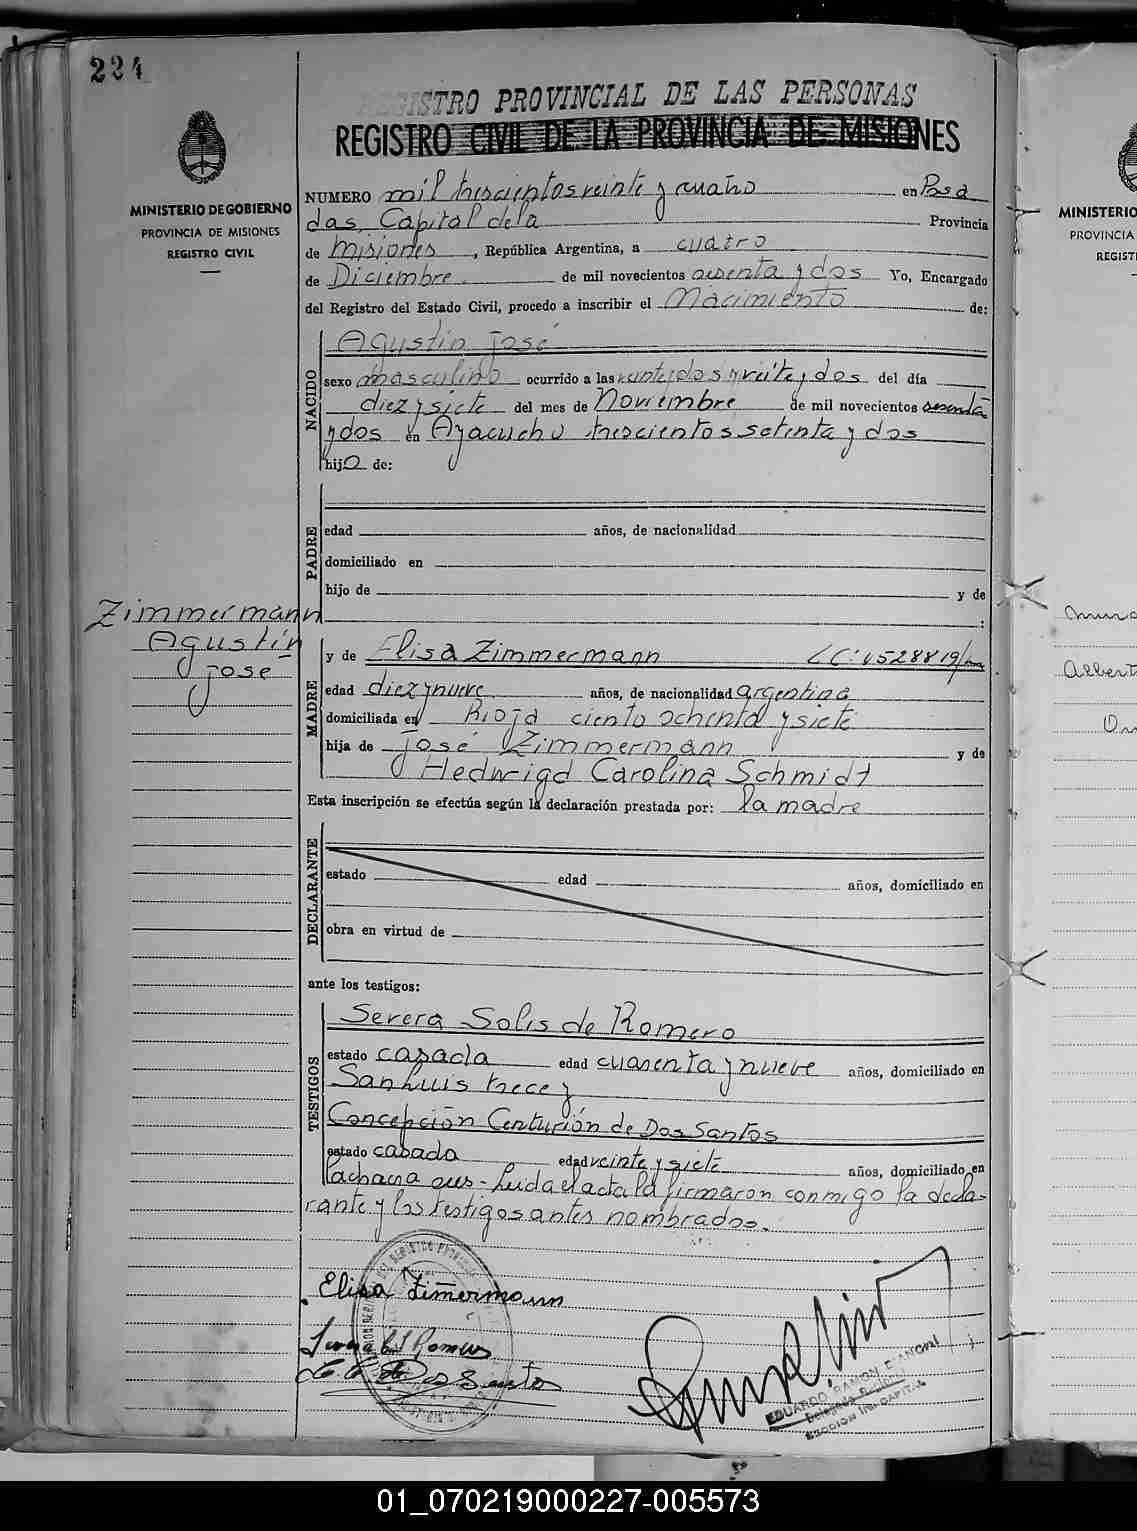 224
REGISTRO PROVINCIAL DE LAS PERSONAS
REGISTRO CIVIL DE LA PROVINCIA DE MISIONES
MINISTERIO DE GOBIERNO
PROVINCIA DE MISIONES
REGISTRO CIVIL
NUMERO mil trescientos veinte y cuatro en Posa
das, Capital de la Provincia
de Misiones, República Argentina, a cuatro
de Diciembre de mil novecientos sesenta y dos Yo, Encargado
del Registro del Estado Civil, procedo a inscribir el Nacimiento de:
NACIDO
Agustín José
sexo masculino ocurrido a las veinte y dos y veite y dos del día
diez y siete del mes de Noviembre de mil novecientos sesenta
y dos en Ayacucho trescientos setenta y dos
hijo de:
PADRE
edad años, de nacionalidad
domiciliado en
hijo de y de
:
Zimmermann
Agustín
José
MADRE
y de Elisa Zimmermann LC:
edad diez y nueve años, de nacionalidad argentina
domiciliada en Rioja ciento ochenta y siete
hija de José Zimmermann y de
Hedwigd Carolina Schmidt
Esta inscripción se efectúa según la declaración prestada por: la madre
DECLARANTE
estado edad años, domiciliado en
obra en virtud de
ante los testigos:
TESTIGOS
Severa Solis de Romero
estado casada edad cuarenta y nueve años, domiciliado en
San Luis trece y
Concepción Centurión de Dos Santos
estado casada edad veinte y siete años, domiciliado en
Leida el acta la firmaron conmigo la decla-
rante y los testigos antes nombrados.
Elisa Zimermann
Romero
Dos Santos
EDUARDO RAMON BIANCHI
MINISTERIO
PROVINCIA
REGIST
Albert
01_070219000227-005573